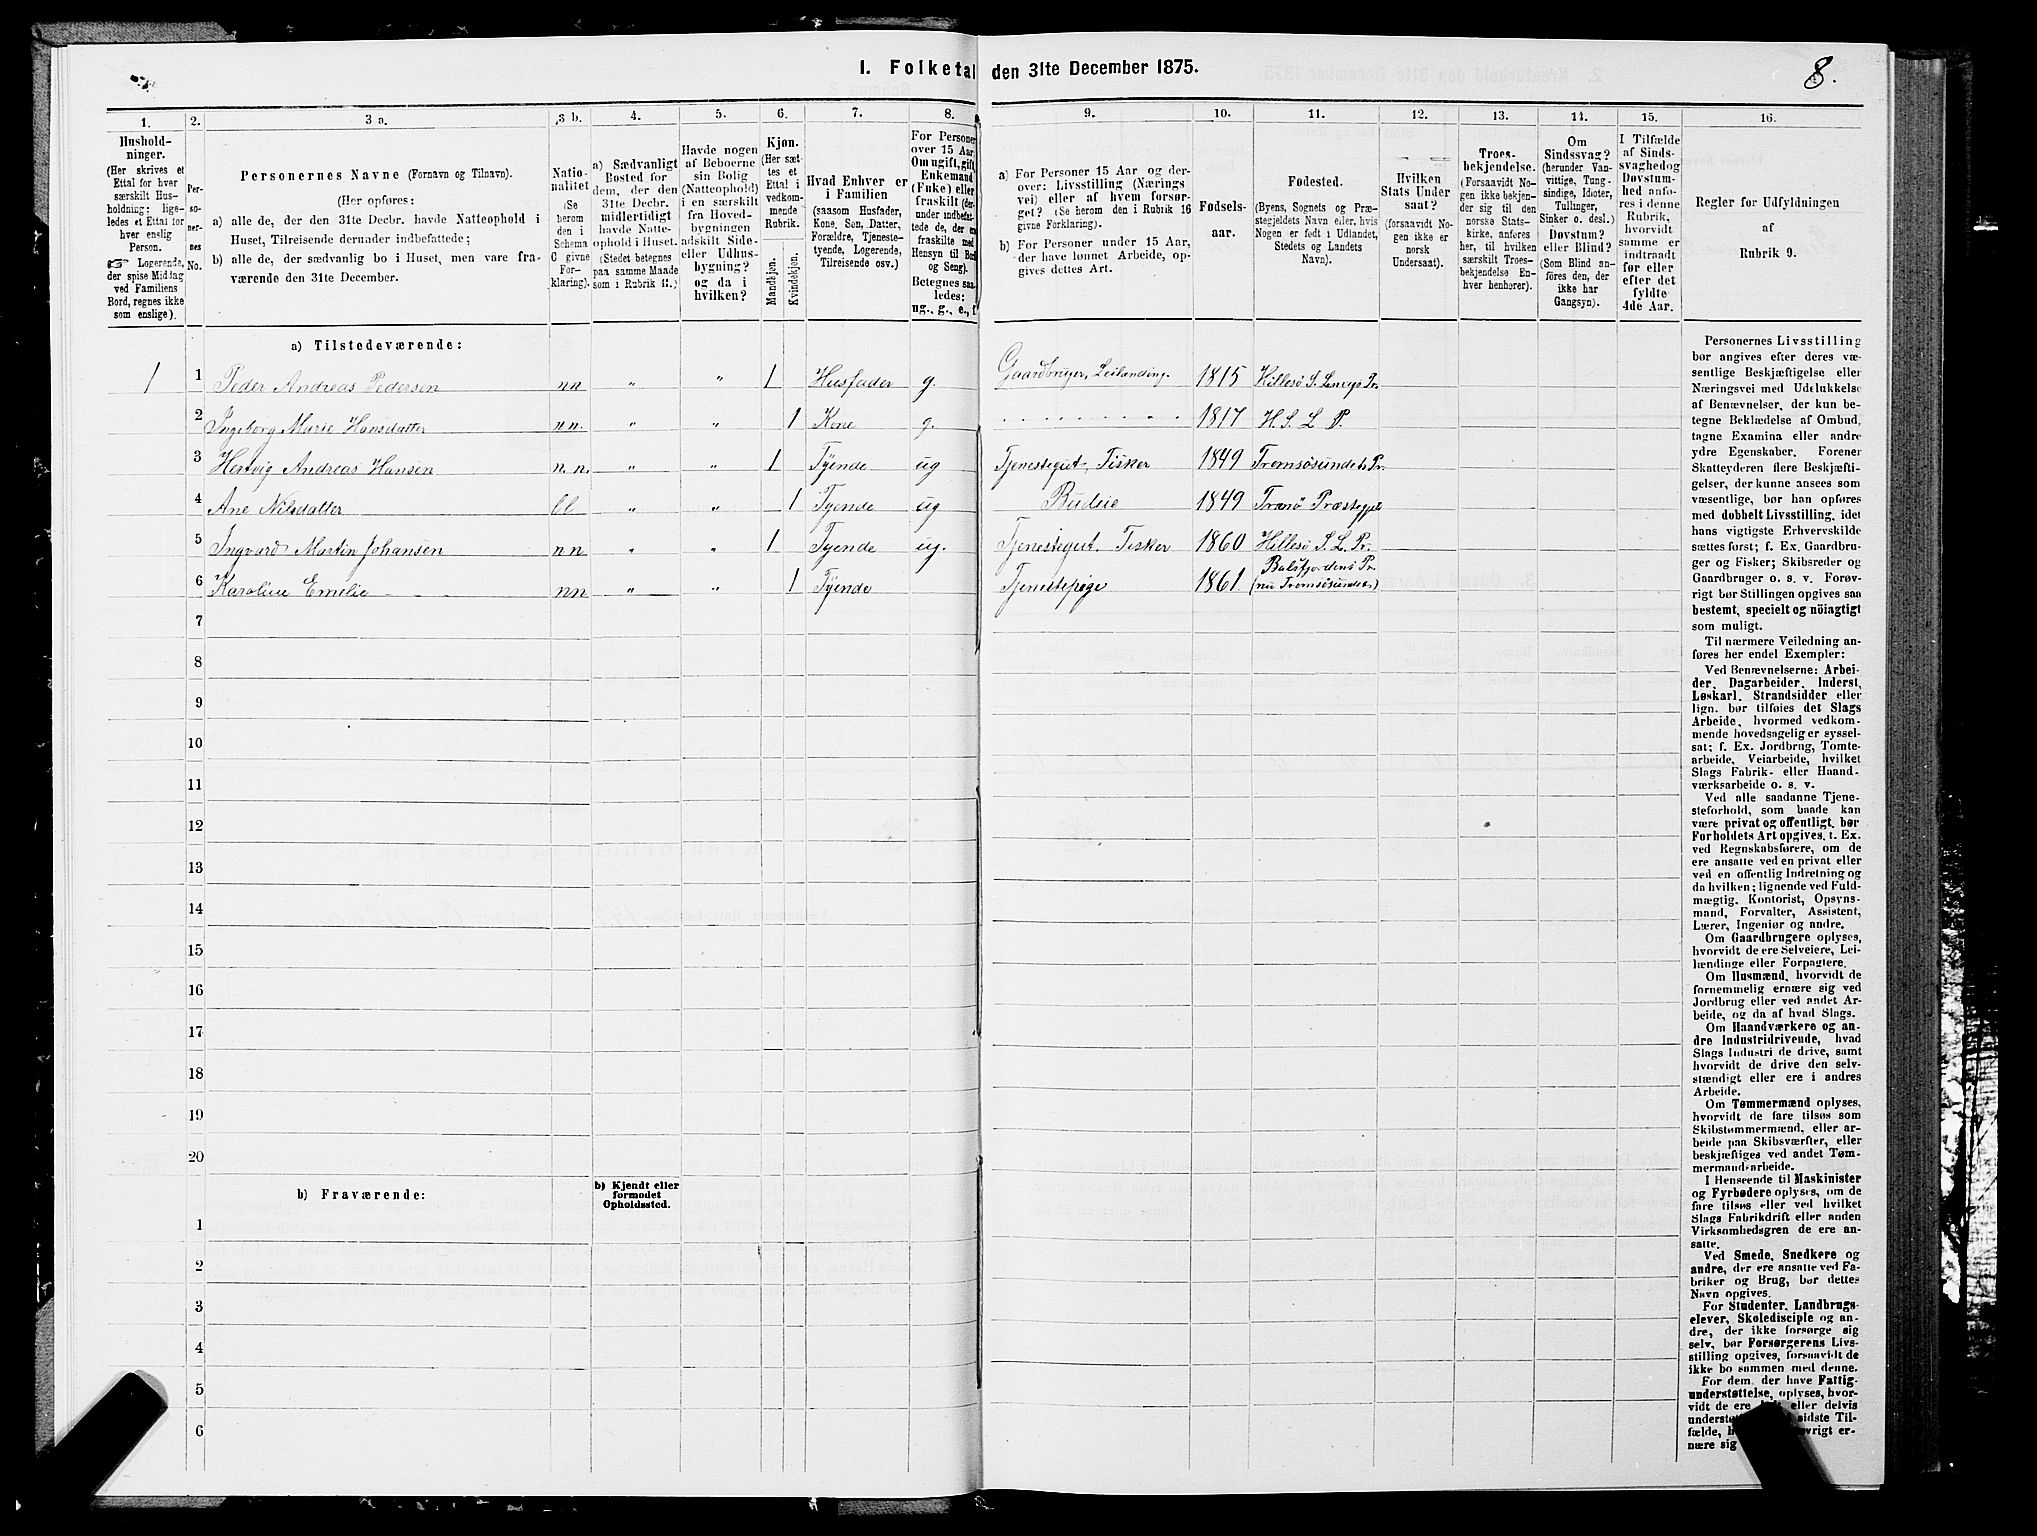 I. Folketal den 31te December 1875.
8.
1. 2. 3 a. 3 b. 4. 5. 6. 7. 8. 9. 10. 11. 12. 13. 14. 15. 16.
Hushold-
ninger.
(Her skrives et
Ettal for hver
særskilt Hus-
holdning; lige-
ledes et Ettal for
hver enslig
Person.
☞ Logerende,
der spise Middag
ved Familiens
Bord, regnes ikke
som enslige).
Per-
so-
ner-
nes
No.
Personernes Navne (Fornavn og Tilnavn).
(Her opføres:
a) alle de, der den 31te Decbr. havde Natteophold i
Huset, Tilreisende derunder indbefattede;
b) alle de, der sædvanlig bo i Huset, men vare fra-
værende den 31te December.
Natio-
nalitet
(Se
herom
den i
Schema
C givne
For-
klaring).
a) Sædvanligt
Bosted for
dem, der den
31te Decbr.
midlertidigt
havde Natte-
ophold i Huset.
(Stedet betegnes
paa samme Maade
som i Rubrik 11.)
Havde nogen
af Beboerne
sin Bolig
(Natteophold)
i en særskilt
fra Hoved-
bygningen
adskilt Side-
eller Udhus-
bygning?
og da i
hvilken?
Kjøn.
(Her sæt-
tes et
Ettal i
vedkom-
mende
Rubrik.
Mandkjøn.
Kvindekjøn.
Hvad Enhver er
i Familien
(saasom Husfader,
Kone, Søn, Datter,
Forældre, Tjeneste-
tyende, Logerende,
Tilreisende osv.)
For Personer
over 15 Aar:
Om ugift, gift,
Enkemand
(Enke) eller
fraskilt (der-
under indbefat-
tede de, der ere
fraskilte med
Hensyn til Bord
og Seng).
Betegnes saa-
ledes:
ug., g., e., f.
a) For Personer 15 Aar og der-
over: Livsstilling (Nærings
vei) eller af hvem forsør-
get? (Se herom den i Rubrik 16
givne Forklaring).
b) For Personer under 15 Aar,
der have lønnet Arbeide, op-
gives dettes Art.
Fødsels-
aar.
Fødested.
(Byens, Sognets og Præ-
stegjeldets Navn eller, hvis
Nogen er født i Udlandet,
Stedets og Landets
Navn).
Hvilken
Stats Under
saat?
(forsaavidt No-
gen ikke er
norsk
Undersaat).
Troes-
bekjendelse.
(Forsaavidt No-
gen ikke bekjen-
der sig til den
norske Stats-
kirke, anføres
her, til hvilken
særskilt Troes-
bekjendelse En-
hver henhører).
Om
Sindssvag?
(herunder Van-
vittige, Tung-
sindige, Idioter,
Tullinger,
Sinker o. desl.)
Døvstum?
eller Blind?
(Som Blind an-
føres den, der
ikke har
Gangsyn).
I Tilfælde
af Sinds-
svaghed og
Døvstum-
hed anfø-
res i denne
Rubrik,
hvorvidt
samme er
indtraadt
før eller
efter det
fyldte
4de Aar.
Regler for Udfyldningen
af
Rubrik 9.
a) Tilstedeværende:
1 1 Peder Andreas Pedersen nn " " 1 Husfader g. Gaardbruger, Leilænding. 1815 Hillesö S. Lenvigs Pr.
2 Ingeborg Marie Hansdatter n n. " " 1 Kone g. 1817 H. S. L P.
3 Hertvig Andreas Hansen n. n. " " 1 Tÿende ug Tjenestegut, Fisker 1849 Tromsøsundets Pr.
4 Ane Nilsdatter bl " " 1 Tyende ug Budeie 1849 Tranö Præstegjel
5 Ingvard Martin Johansen nn " " 1 Tyende ug. Tjenestegut. Fisker 1860 Hillesö S. L. Pr.
6 Karoline Emelie nn " " 1 Tÿende Tjenestepige 1861 Balsfjordens Pr. (nu Tromsøsundet.)
7
8
9
10
11
12
13
14
15
16
17
18
19
20
b) Fraværende:
b) Kjendt eller
formodet
Opholdssted.
1
2
3
4
5
6
Personernes Livsstilling
bør angives efter deres væ-
sentlige Beskjæftigelse eller
Næringsvei med Udelukkelse
af Benævnelser, der kun be-
tegne Beklædelse af Ombud,
tagne Examina eller andre
ydre Egenskaber. Forener
Skatteyderen flere Beskjæfti-
gelser, der kunne ansees som
væsentlige, bør han opføres
med dobbelt Livsstilling, idet
hans vigtigste Erhvervskilde
sættes først; f. Ex. Gaardbru-
ger og Fisker; Skibsreder og
Gaardbruger o. s. v. Forøv-
rigt bør Stillingen opgives saa
bestemt, specielt og nöiagtigt
som muligt.
Til nærmere Veiledning an-
føres her endel Exempler:
Ved Benævnelserne: Arbei-
der, Dagarbeider, Inderst,
Løskarl, Strandsidder eller
lign. bør tilføies det Slags
Arbeide, hvormed vedkom-
mende hovedsagelig er syssel-
sat; f. Ex. Jordbrug, Tomte-
arbeide, Veiarbeide, hvilket
Slags Fabrik- eller Haand-
værksarbeide o. s. v.
Ved alle saadanne Tjene-
steforhold, som baade kan
være privat og offentligt, bør
Forholdets Art opgives, t. Ex.
ved Regnskabsførere, om de
ere ansatte ved en privat eller
ved en offentlig Indretning og
da hvilken; lignende ved Fuld-
mægtig, Kontorist, Opsyns-
mand, Forvalter, Assistent,
Lærer, Ingeniør og andre.
Om Gaardbrugere oplyses,
hvorvidt de ere Selveiere, Lei-
lændinge eller Forpagtere.
Om Husmænd, hvorvidt de
fornemmelig ernære sig ved
Jordbrug eller ved andet Ar-
beide, og da af hvad Slags.
Om Haandværkere og an-
dre Industridrivende, hvad
Slags Industri de drive, samt
hvorvidt de drive den selv-
stændigt eller ere i andres
Arbeide.
Om Tømmermænd oplyses,
hvorvidt de fare tilsøs som
Skibstømmermænd, eller ar-
beide paa Skibsværfter, eller
beskjæftiges ved andet Tøm-
mermandsarbeide.
I Henseende til Maskinister
og Fyrbødere oplyses, om de
fare tilsøs eller ved hvilket
Slags Fabrikdrift eller anden
Virksomhedsgren de ere an-
satte.
Ved Smede, Snedkere og
andre, der ere ansatte ved Fa-
briker og Brug, bør dettes
Navn opgives.
For Studenter, Landbrugs-
elever, Skoledisciple og an-
dre, der ikke forsørge sig
selv, bør Forsørgerens Livs-
stilling opgives, forsaavidt de
ikke bo sammen med denne.
For dem, der have Fattig-
understøttelse, oplyses, hvor-
vidt de ere eller delvis
sidste Til-
fælde, ovrigt er-
nære sig